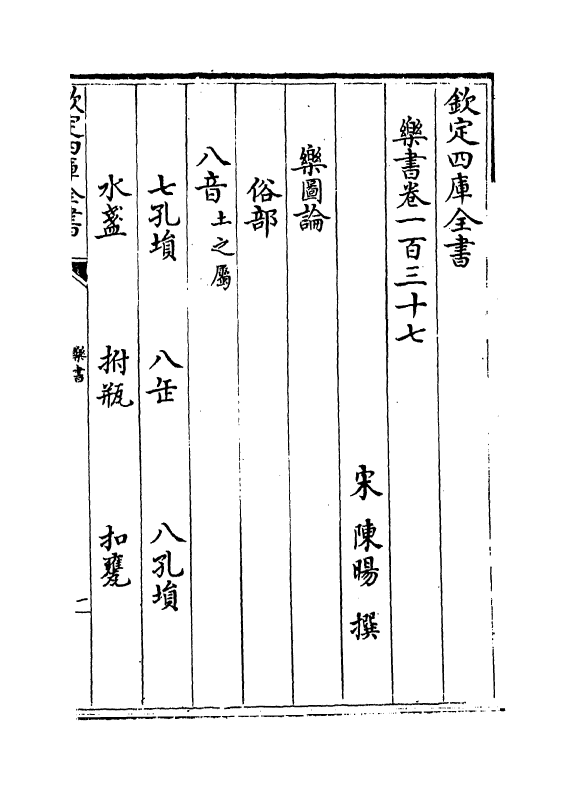 欽定四庫全書
樂書卷一百三十七
宋 陳暘 撰
樂圖論
俗部
八音土之屬
七孔塤 八缶 八孔塤
水盞 拊瓶 扣甕
欽定四庫全書 樂書 一